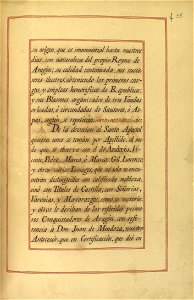 su origen, que es immemorial hasta nuestros
dias, con naturaleza del propio Reyno de
Aragón, su calidad continuada, sus succe-
sores ilustres, obteniendo los primeros cargos,
y empleos honorificos de Republica,
y sus Blasones organizados de tres Fondas
orleadas, y circundadas de Santores, ò As-
pas, según, se repetirán.
De la devocion al Santo Apostol
quienes uno, ò tomado por Apellido, al mo-
do que se observa con el de Andrès, Vi-
cente, Pedro, Marco, ò Marcos, Gil, Lorenzo,
y otros varios Linages, que no solo se en-
cuentran distinguidos con calificada nobleza,
sino con Titulos de Castilla, con Señorias,
Varonias, y Mayorazgos; como es notorio,
y otros se derivan de los referidos prime-
ros Conquistadores de Aragón, con refe-
rencia à Don Juan de Mendoza, nuestro
Antecesor, que en Certificacion, que diò en